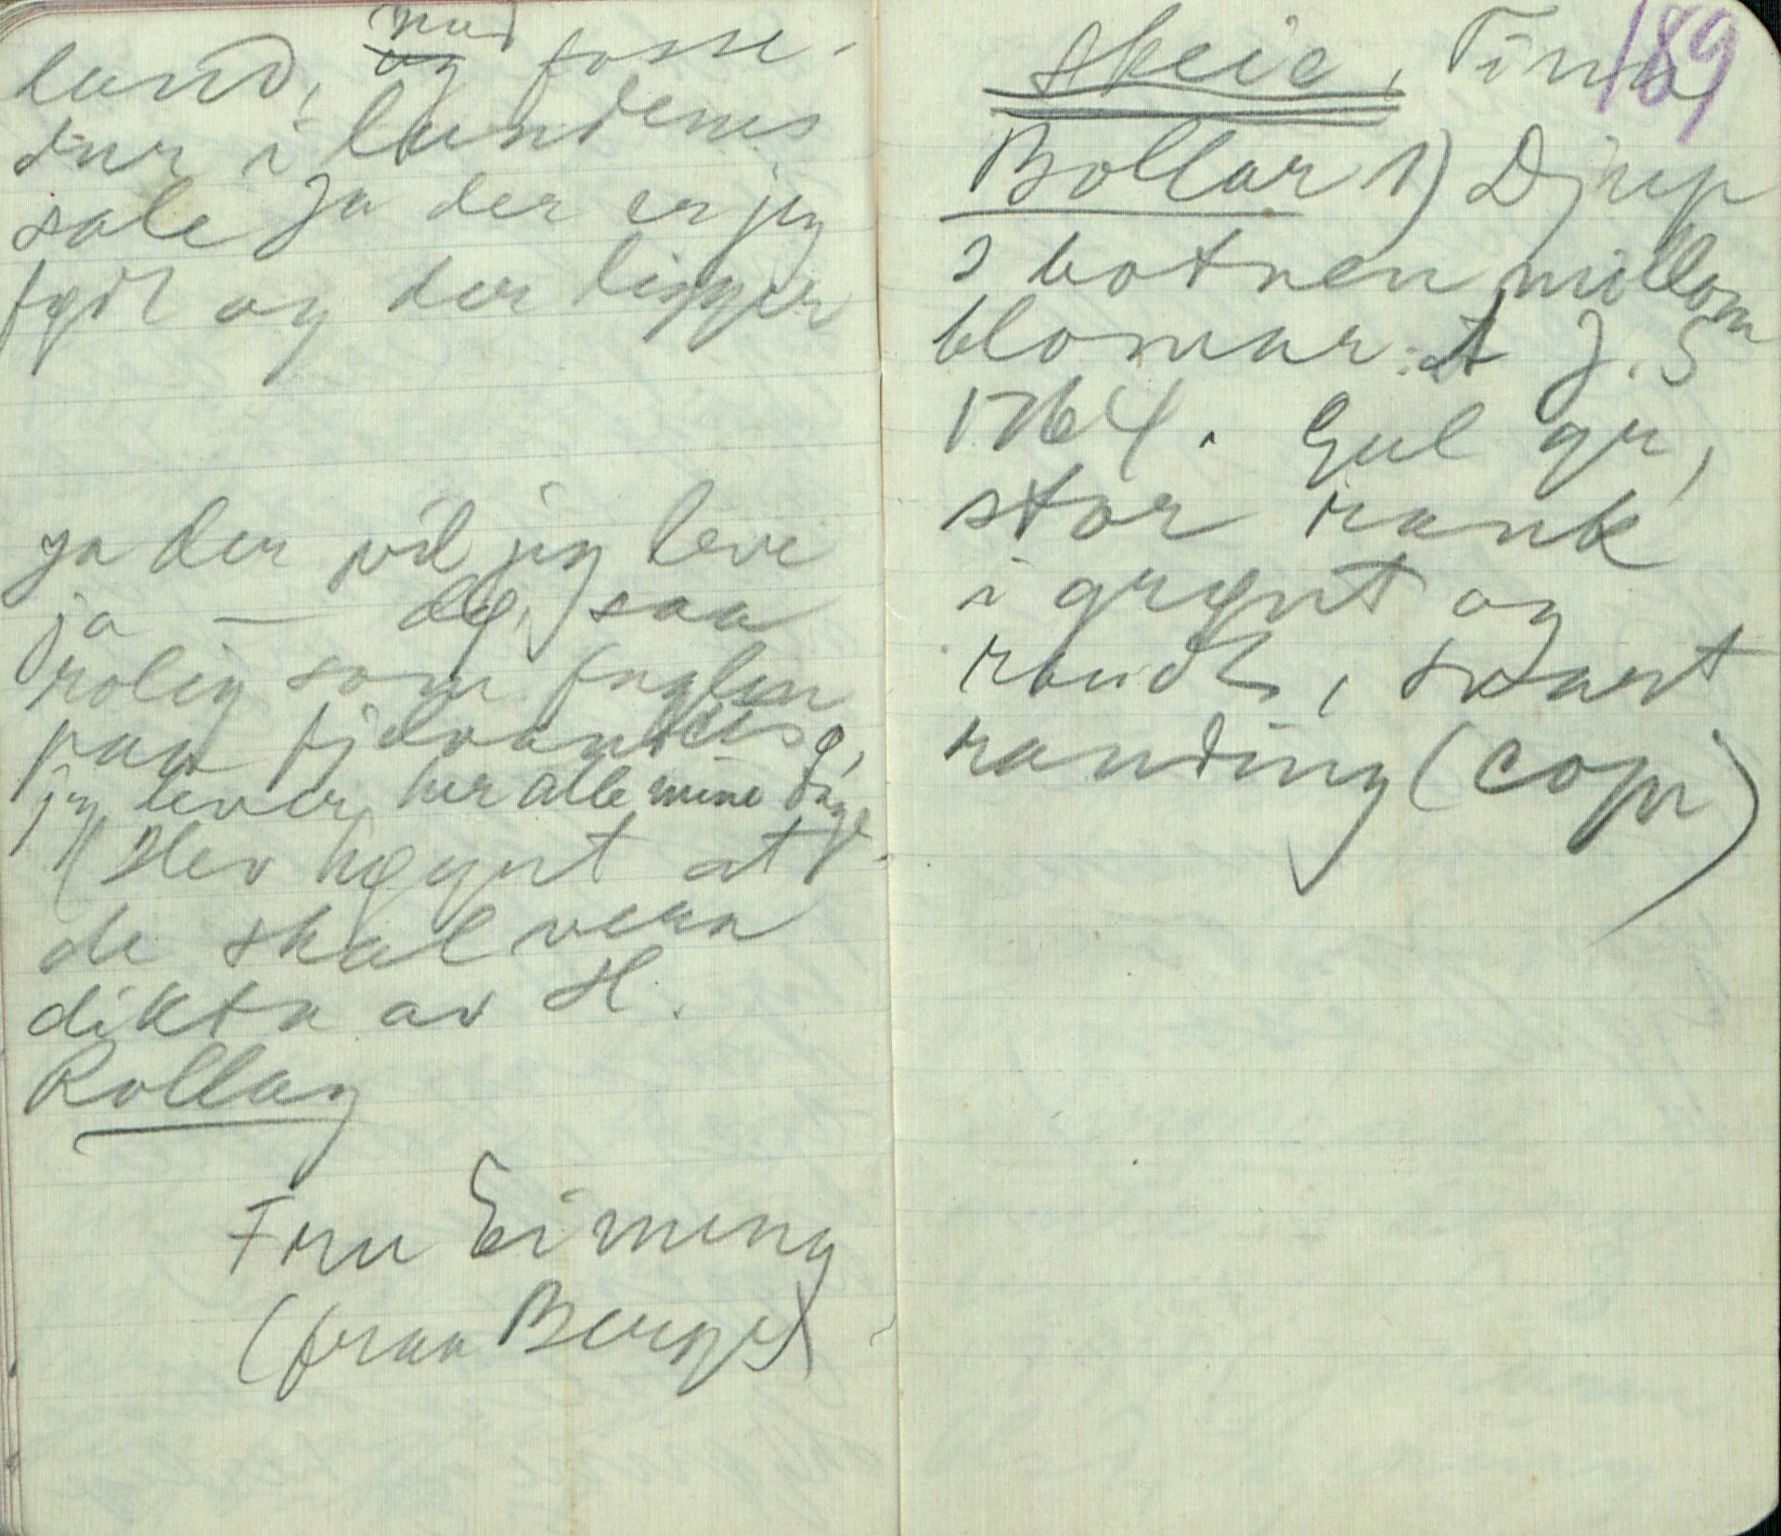 land, med fosse-
dur i lundens
sale Ja der er jeg
født og der ligger
ja der vil jeg leve
ja — dø, saa
rolig som fuglen
paa fjelvandets
jeg lever her alle mine dage
Hev høyrt at
de skal vera
dikta av H.
Rollag
Fru Eimeng
(fraa Berge)
189
Skeie, Tinn
Bollar 1) Djup
I botnen millom
blomar: A J. S
1764. Gul gr,
stor rank
i grønt og
raudt, svart
randing (copi)